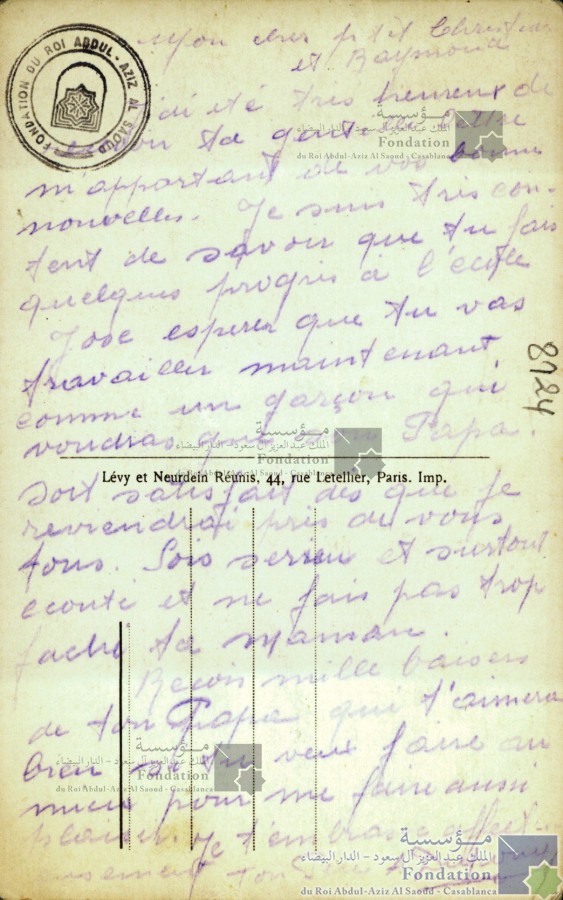 Mon cher p'tit Christian
et Raymond
FONDATION DU ROI ABDUL-AZIZ AL SAOUD
J'ai été très heureux de
ta
m'apportant de vos bonnes
nouvelles. Je suis très con-
tent de savoir que tu fais
quelques progrès à l'école
J'ose esperer que tu vas
travailler maintenant
comme un garçon qui
voudras que Papa.
8724
Lévy et Neurdein Réunis, 44, rue Letellier, Paris. Imp.
soit satisfait dès que je
reviendrai près de vous
tous. Sois et surtout
ecoute et ne fais pas trop
fache ta maman.
Recois mille baisers
de ton Papa qui t'aimera
bien si tu veux faire au
mieux pour me faire aussi
plaisir. Je t'embrasse affect-
ueusement ton
مؤسسة
الملك عبد العزيز آل سعود - الدار البيضاء
Fondation
du Roi Abdul-Aziz Al Saoud - Casablanca
مؤسسة
الملك عبد العزيز آل سعود - الدار البيضاء
Fondation
du Roi Abdul-Aziz Al Saoud - Casablanca
مؤسسة
الملك عبد العزيز آل سعود - الدار البيضاء
Fondation
du Roi Abdul-Aziz Al Saoud - Casablanca
مؤسسة
الملك عبد العزيز آل سعود - الدار البيضاء
Fondation
du Roi Abdul-Aziz Al Saoud - Casablanca